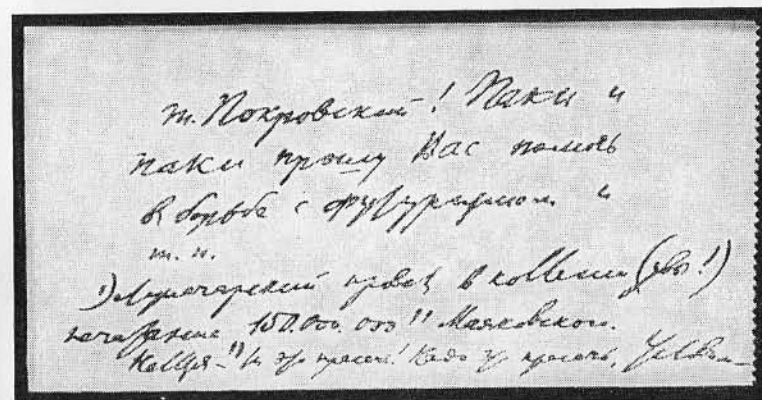 т. Покровский! Паки и
паки прошу Вас помочь
в борьбе с футуризмом и
т. п.
1) Луначарский провел в коллегии (увы!)
печатание "150.000.000" Маяковского.
Нельзя ли это пресечь? Надо это пресечь.